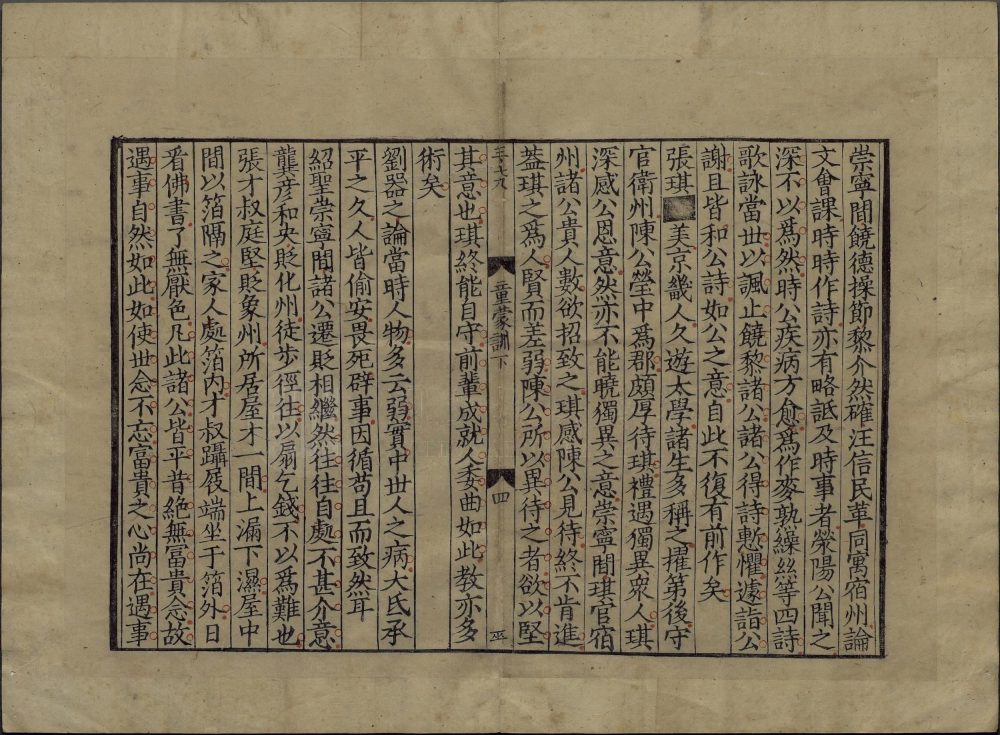 崇寧間饒德操節黎介然確汪信民革同寓宿州論
文會課時時作詩亦有略詆及時事者榮陽公聞之
深不以爲然時公疾病方愈爲作麥孰繰絲等四詩
歌詠當世以諷止饒黎諸公諸公得詩慙懼遽詣公
謝且皆和公詩如公之意自此不復有前作矣
張琪美京畿人久遊太學諸生多稱之擢第後守
官衛州陳公瑩中爲郡頗厚待琪禮遇獨異衆人琪
深感公恩意然亦不能曉獨異之意崇寧間琪官宿
州諸公貴人數欲招致之琪感陳公見待終不肯進
蓋琪之爲人賢而差弱陳公所以異待之者欲以堅
童蒙訓下
四
其意也琪終能自守前輩成就人委曲如此教亦多
術矣
劉器之論當時人物多云弱實中世人之病大氐承
平之久人皆偷安畏死辟事因循苟且而致然耳
紹聖崇寧間諸公遷貶相繼然往往自處不甚介意
龔彥和夬貶化州徒步徑往以扇乞錢不以爲難也
張才叔庭堅貶象州所居屋才一間上漏下濕屋中
間以箔隔之家人處箔内才叔躡屐端坐于箔外日
看佛書了無厭色凡此諸公皆平昔絶無富貴念故
遇事自然如此如使世念不忘富貴之心尚在遇事